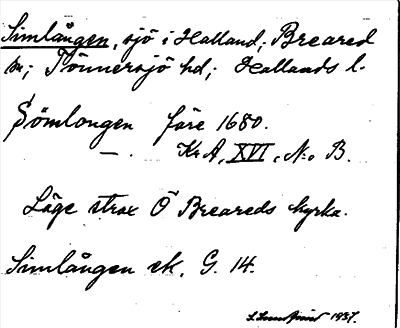 Simlången, sjö i Halland; Breared
sn; Tönnersjö hd; Hallands l.
Sömlongen före 1680.
— . KrA, XVI, No B.
Läge strax Ö Breareds kyrka.
Simlången ek. G. 14.
1937.